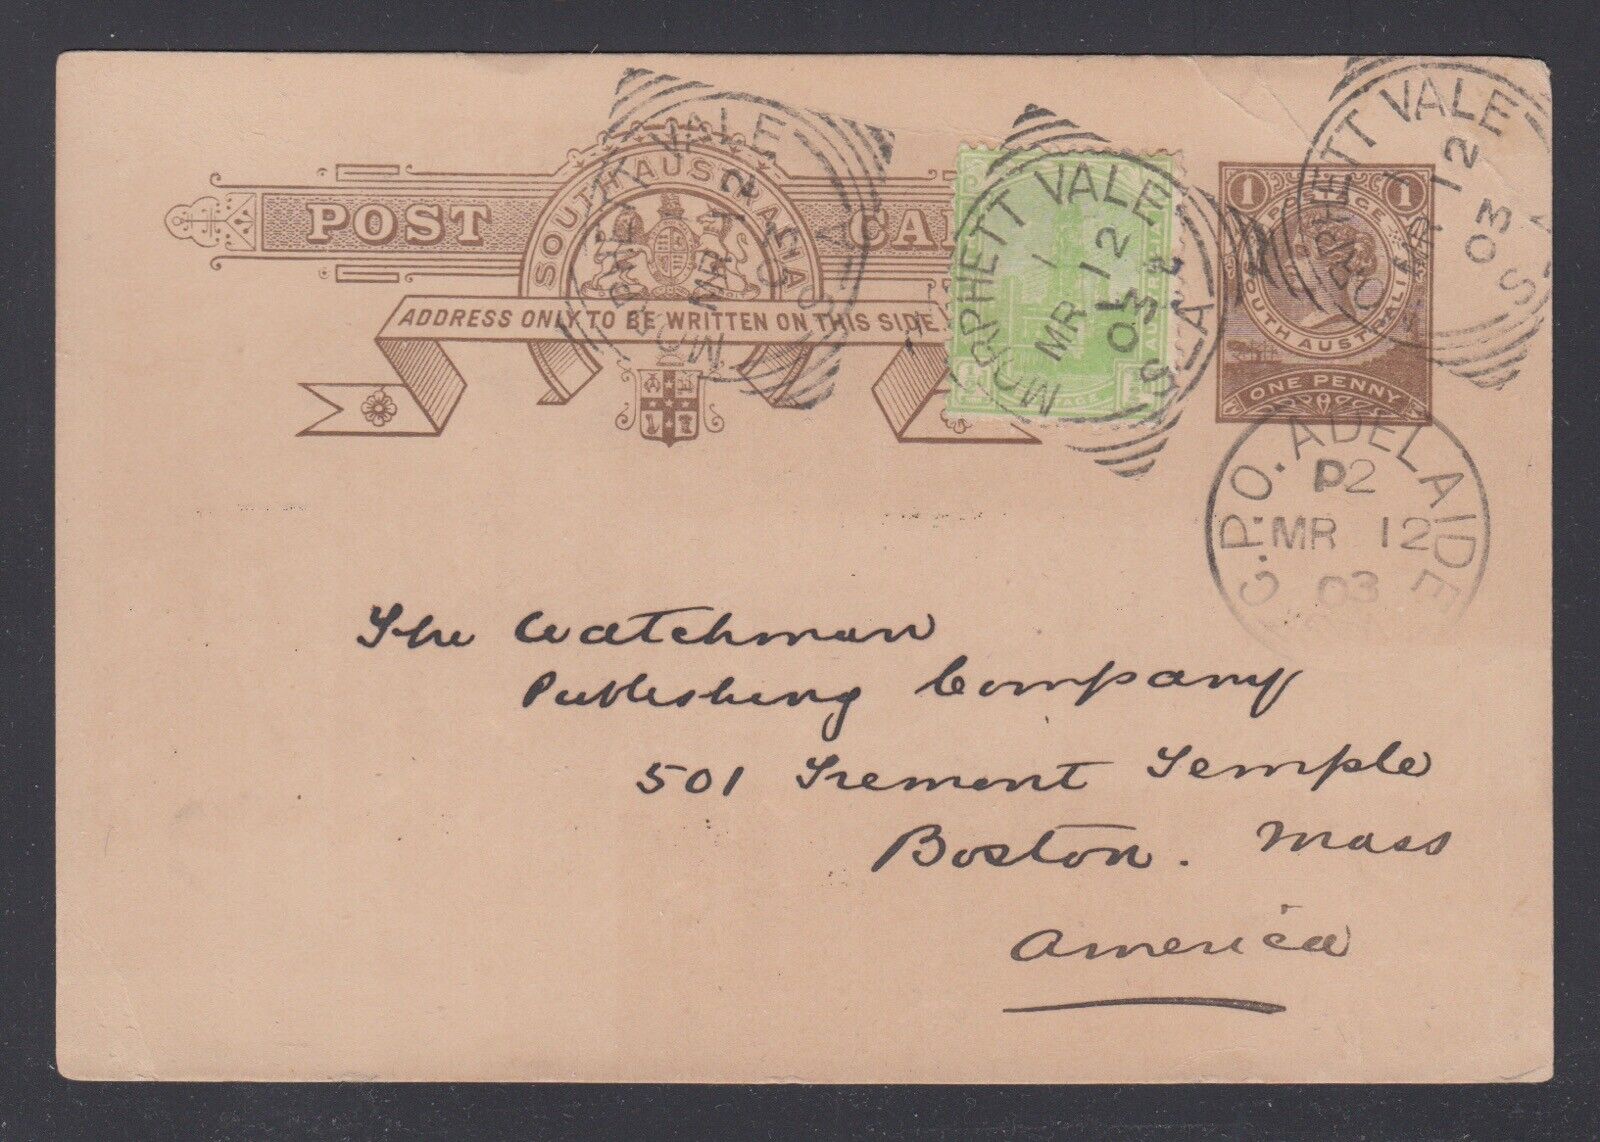 POST CARD
SOUTH AUSTRALIA
ADDRESS ONLY TO BE WRITTEN ON THIS SIDE
MORPHETT VALE
1
MR 12
03
S.A
MORPHETT VALE
1
MR 12
03
S.A
MORPHETT VALE
1
MR 12
03
S.A
1 1
POSTAGE
SOUTH AUSTRALIA
ONE PENNY
G.P.O. ADELAIDE
P2
MR 12
03
The Watchman
Publishing Company
501 Tremont Temple
Boston. Mass
America